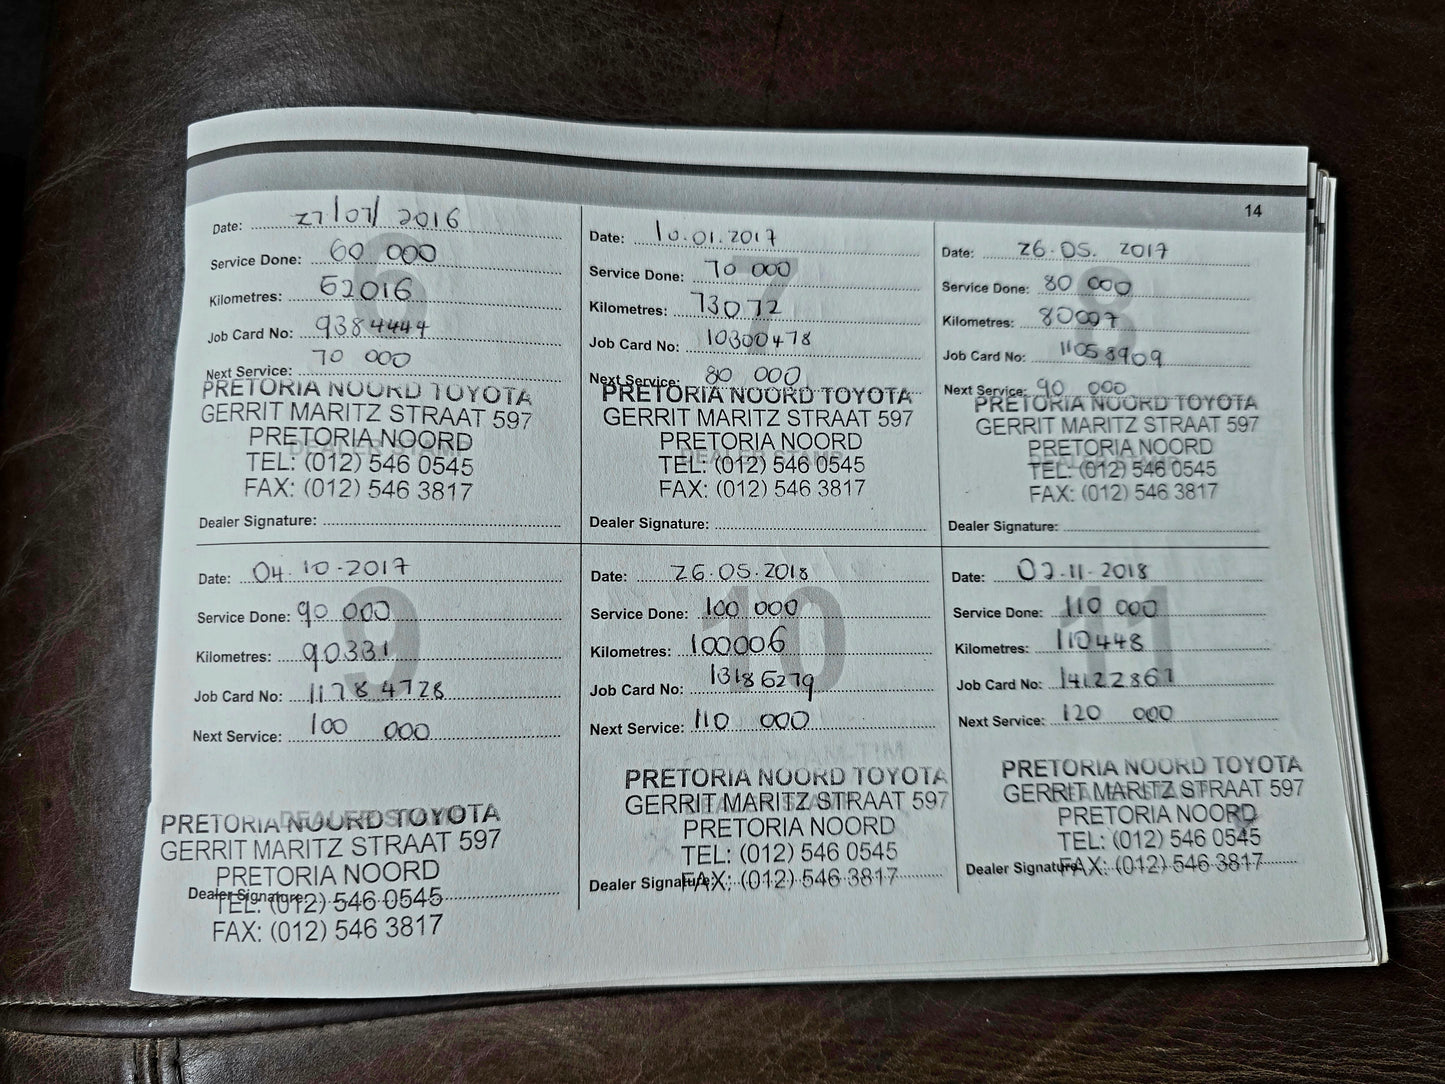 14
Date: 27/07/2016
Service Done: 60 000
Kilometres: 62016
Job Card No: 9384444
Next Service: 70 000
PRETORIA NOORD TOYOTA
GERRIT MARITZ STRAAT 597
PRETORIA NOORD
DEALER STAMP
TEL: (012) 546 0545
FAX: (012) 546 3817
Dealer Signature:
6
Date: 10.01.2017
Service Done: 70 000
Kilometres: 73072
Job Card No: 10300478
Next Service: 80 000
PRETORIA NOORD TOYOTA
GERRIT MARITZ STRAAT 597
PRETORIA NOORD
DEALER STAMP
TEL: (012) 546 0545
FAX: (012) 546 3817
Dealer Signature:
7
Date: 26.05.2017
Service Done: 80 000
Kilometres: 80007
Job Card No: 11058909
Next Service: 90 000
PRETORIA NOORD TOYOTA
GERRIT MARITZ STRAAT 597
PRETORIA NOORD
TEL: (012) 546 0545
FAX: (012) 546 3817
Dealer Signature:
8
Date: 04.10-2017
Service Done: 90 000
Kilometres: 90331
Job Card No: 11784728
Next Service: 100 000
DEALER STAMP
PRETORIA NOORD TOYOTA
GERRIT MARITZ STRAAT 597
PRETORIA NOORD
Dealer Signature:
TEL: (012) 546 0545
FAX: (012) 546 3817
9
Date: 26.05.2018
Service Done: 100 000
Kilometres: 100006
Job Card No: 13186279
Next Service: 110 000
PRETORIA NOORD TOYOTA
GERRIT MARITZ STRAAT 597
PRETORIA NOORD
TEL: (012) 546 0545
Dealer Signature:
FAX: (012) 546 3817
10
Date: 02-11-2018
Service Done: 110 000
Kilometres: 110448
Job Card No: 14122867
Next Service: 120 000
PRETORIA NOORD TOYOTA
GERRIT MARITZ STRAAT 597
PRETORIA NOORD
TEL: (012) 546 0545
Dealer Signature:
FAX: (012) 546 3817
11